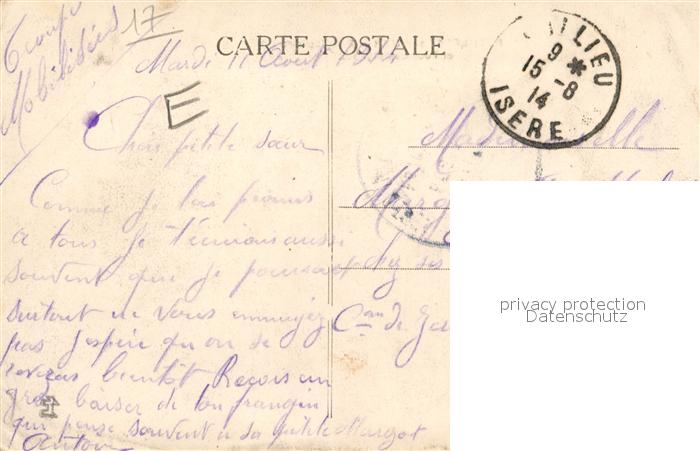 Troupes
Mobilisées
17
CARTE POSTALE
Mardi 11 Aout 1914
E
LIEU
9 *
15 -8
14
ISERE
Chère petite sœur
Mademoiselle
Comme je l'ai promis
a tous je t'écrirai aussi
souvent que je pourrai
chez ses
surtout ne vous ennuyez
Con de
pas j'espère qu'on se
reverras bientot Reçois un
gros baiser de ton frangin
qui pense souvent a sa petite Margot
Antoine
privacy protection
Datenschutz